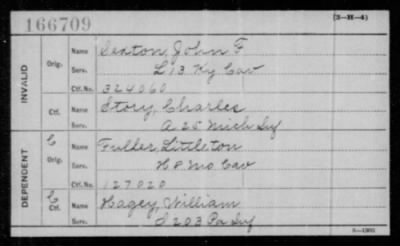 166709
(3—H—4)
INVALID
Orig.
Name Sexton, John F
Serv. L 13 Ky Cav
Ctf. No. 324060
Ctf.
Name Story, Charles
Serv. A 25 Mich Inf
DEPENDENT
C Orig.
Name Fuller Littleton
Serv. H 8 Mo Cav
Ctf. No. 127020
C Ctf.
Name Hagey, William
Serv. 203 Pa Inf